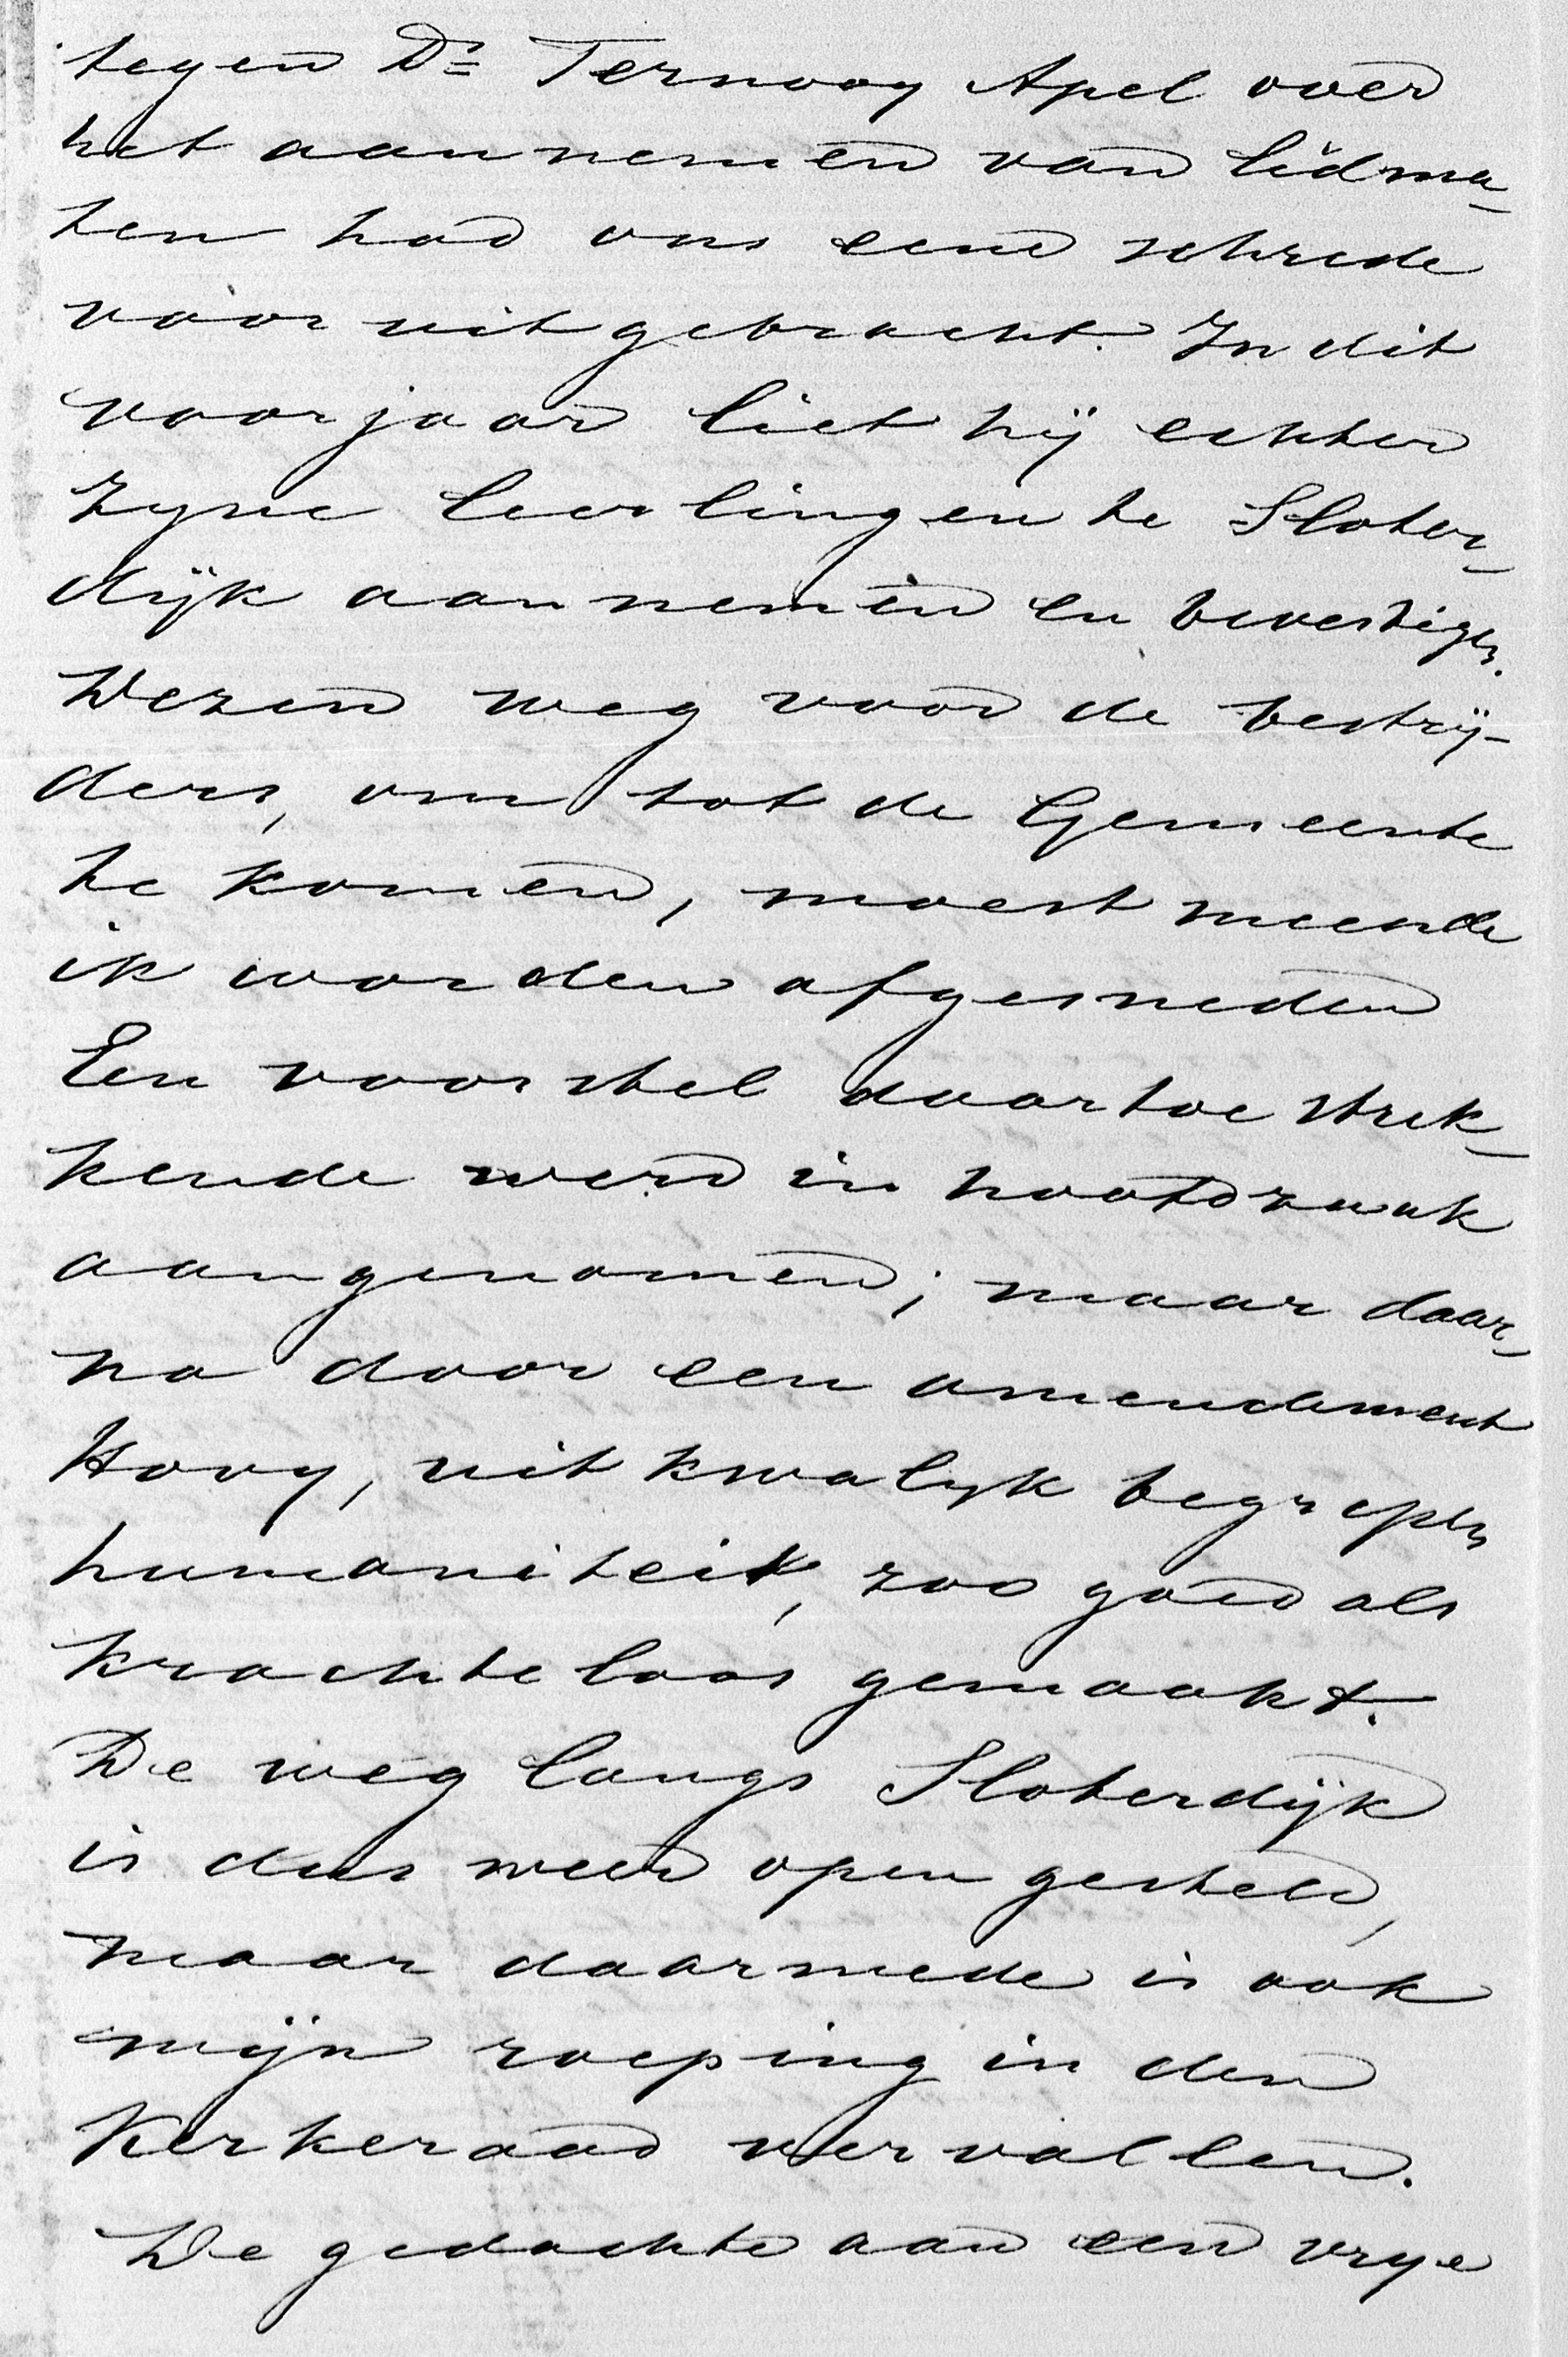 tegen Ds Ternooy Apel over
het aannemen van lidma-
ten had ons eene schrede
vooruitgebracht. In dit
voorjaar liet hij echter
zyne leerlingen te Sloter-
dijk aannemen en bevestigen.
Dezen weg voor de bestrij-
ders, om tot de Gemeente
te komen, moest meende
ik worden afgesneden
Een voorstel daartoe strek-
kende werd in hoofdzaak
aangenomen; maar daar-
na door een amendement
Hovy, uit kwalyk begrepen
humaniteit, zoo goed als
krachteloos gemaakt.
De weg langs Sloterdijk
is dus weer open gesteld,
maar daarmede is ook
mijn roeping in den
Kerkeraad vervallen.
De gedachte aan een vrye